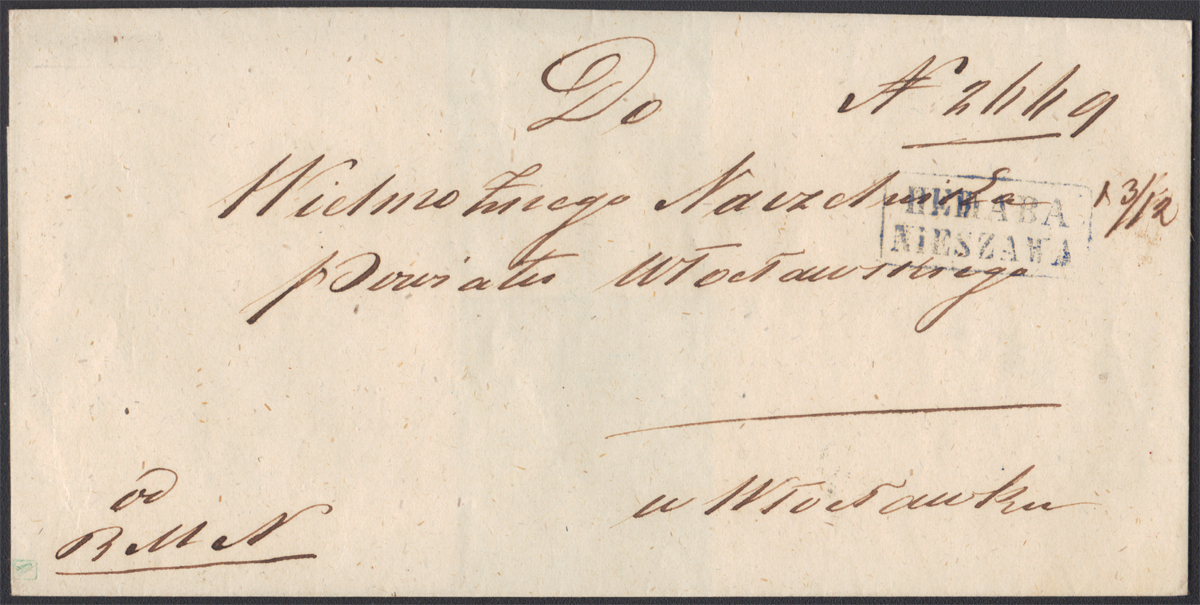 Do
N 2449
Wielmożnego Naczelnika
Powiatu Włocławskiego
НЕШАВА
NIESZAWA
3/12
w Włocławku
od
B M N